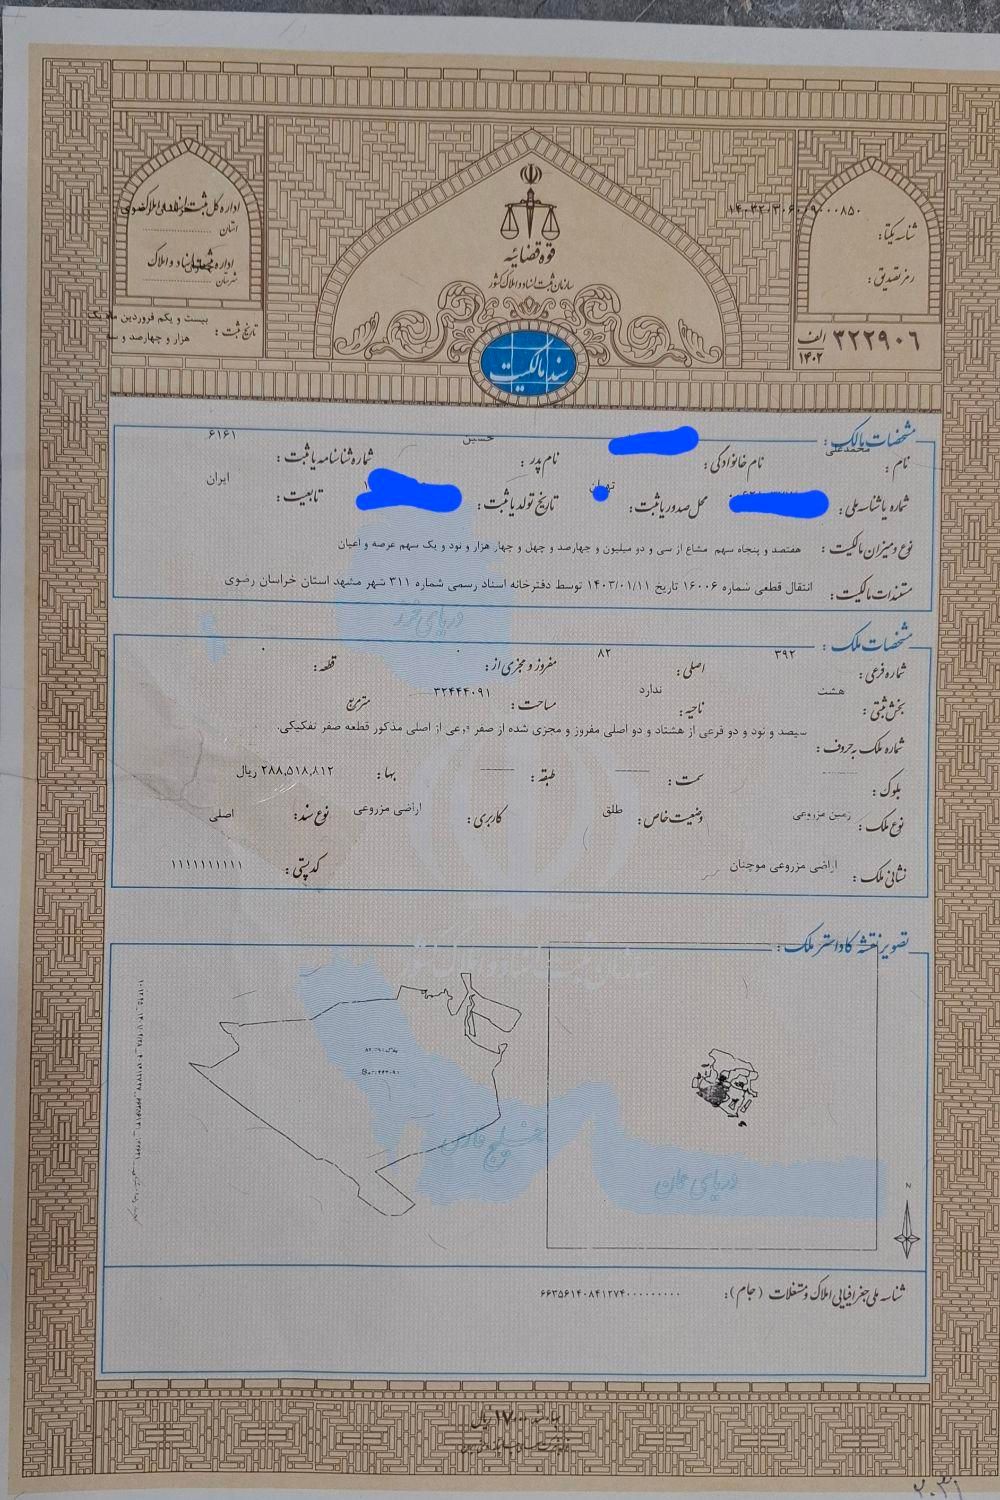 قوه قضائیه
سازمان ثبت اسناد و املاک کشور
سند مالکیت
شناسه یکتا:
رمز تصدیق:
۳۲۲۹۰۶ الف
۱۴۰۲
اداره کل ثبت اسناد و املاک
استان
اداره ثبت اسناد و املاک
شهرستان
تاریخ ثبت: بیست و یکم فروردین ماه یک
هزار و چهارصد و سه
مشخصات مالک:
نام: محمدعلی نام خانوادگی: نام پدر: حسین شماره شناسنامه یا ثبت: ۶۱۶۱
شماره یا شناسه ملی: محل صدور یا ثبت: تهران تاریخ تولد یا ثبت: تابعیت: ایران
نوع و میزان مالکیت: هفتصد و پنجاه سهم مشاع از سی و دو میلیون و چهارصد و چهل و چهار هزار و نود و یک سهم عرصه و اعیان
مستندات مالکیت: انتقال قطعی شماره ۱۶۰۰۶ تاریخ ۱۴۰۳/۰۱/۱۱ توسط دفترخانه اسناد رسمی شماره ۳۱۱ شهر مشهد استان خراسان رضوی
دریای خزر
مشخصات ملک:
شماره فرعی: ۳۹۲ اصلی: ۸۲ مفروز و مجزی از: ۰ قطعه: ۰
بخش ثبتی: هشت ناحیه: ندارد مساحت: ۳۲۴۴۴۰۹۱ مترمربع
شماره ملک به حروف: سیصد و نود و دو فرعی از هشتاد و دو اصلی مفروز و مجزی شده از صفر فرعی از اصلی مذکور قطعه صفر تفکیکی.
بلوک: سمت: طبقه: بها: ۲۸۸,۵۱۸,۸۱۲ ریال
نوع ملک: زمین مزروعی وضعیت خاص: طلق کاربری: اراضی مزروعی نوع سند: اصلی
نشانی ملک: اراضی مزروعی موچنان کدپستی: ۱۱۱۱۱۱۱۱۱۱
تصویر نقشه کاداستر ملک:
خلیج فارس
دریای عمان
N
شناسه ملی جغرافیایی املاک و مستغلات (جام): ۶۶۳۵۶۱۴۰۸۴۱۲۷۴۰۰۰۰۰۰۰۰۰